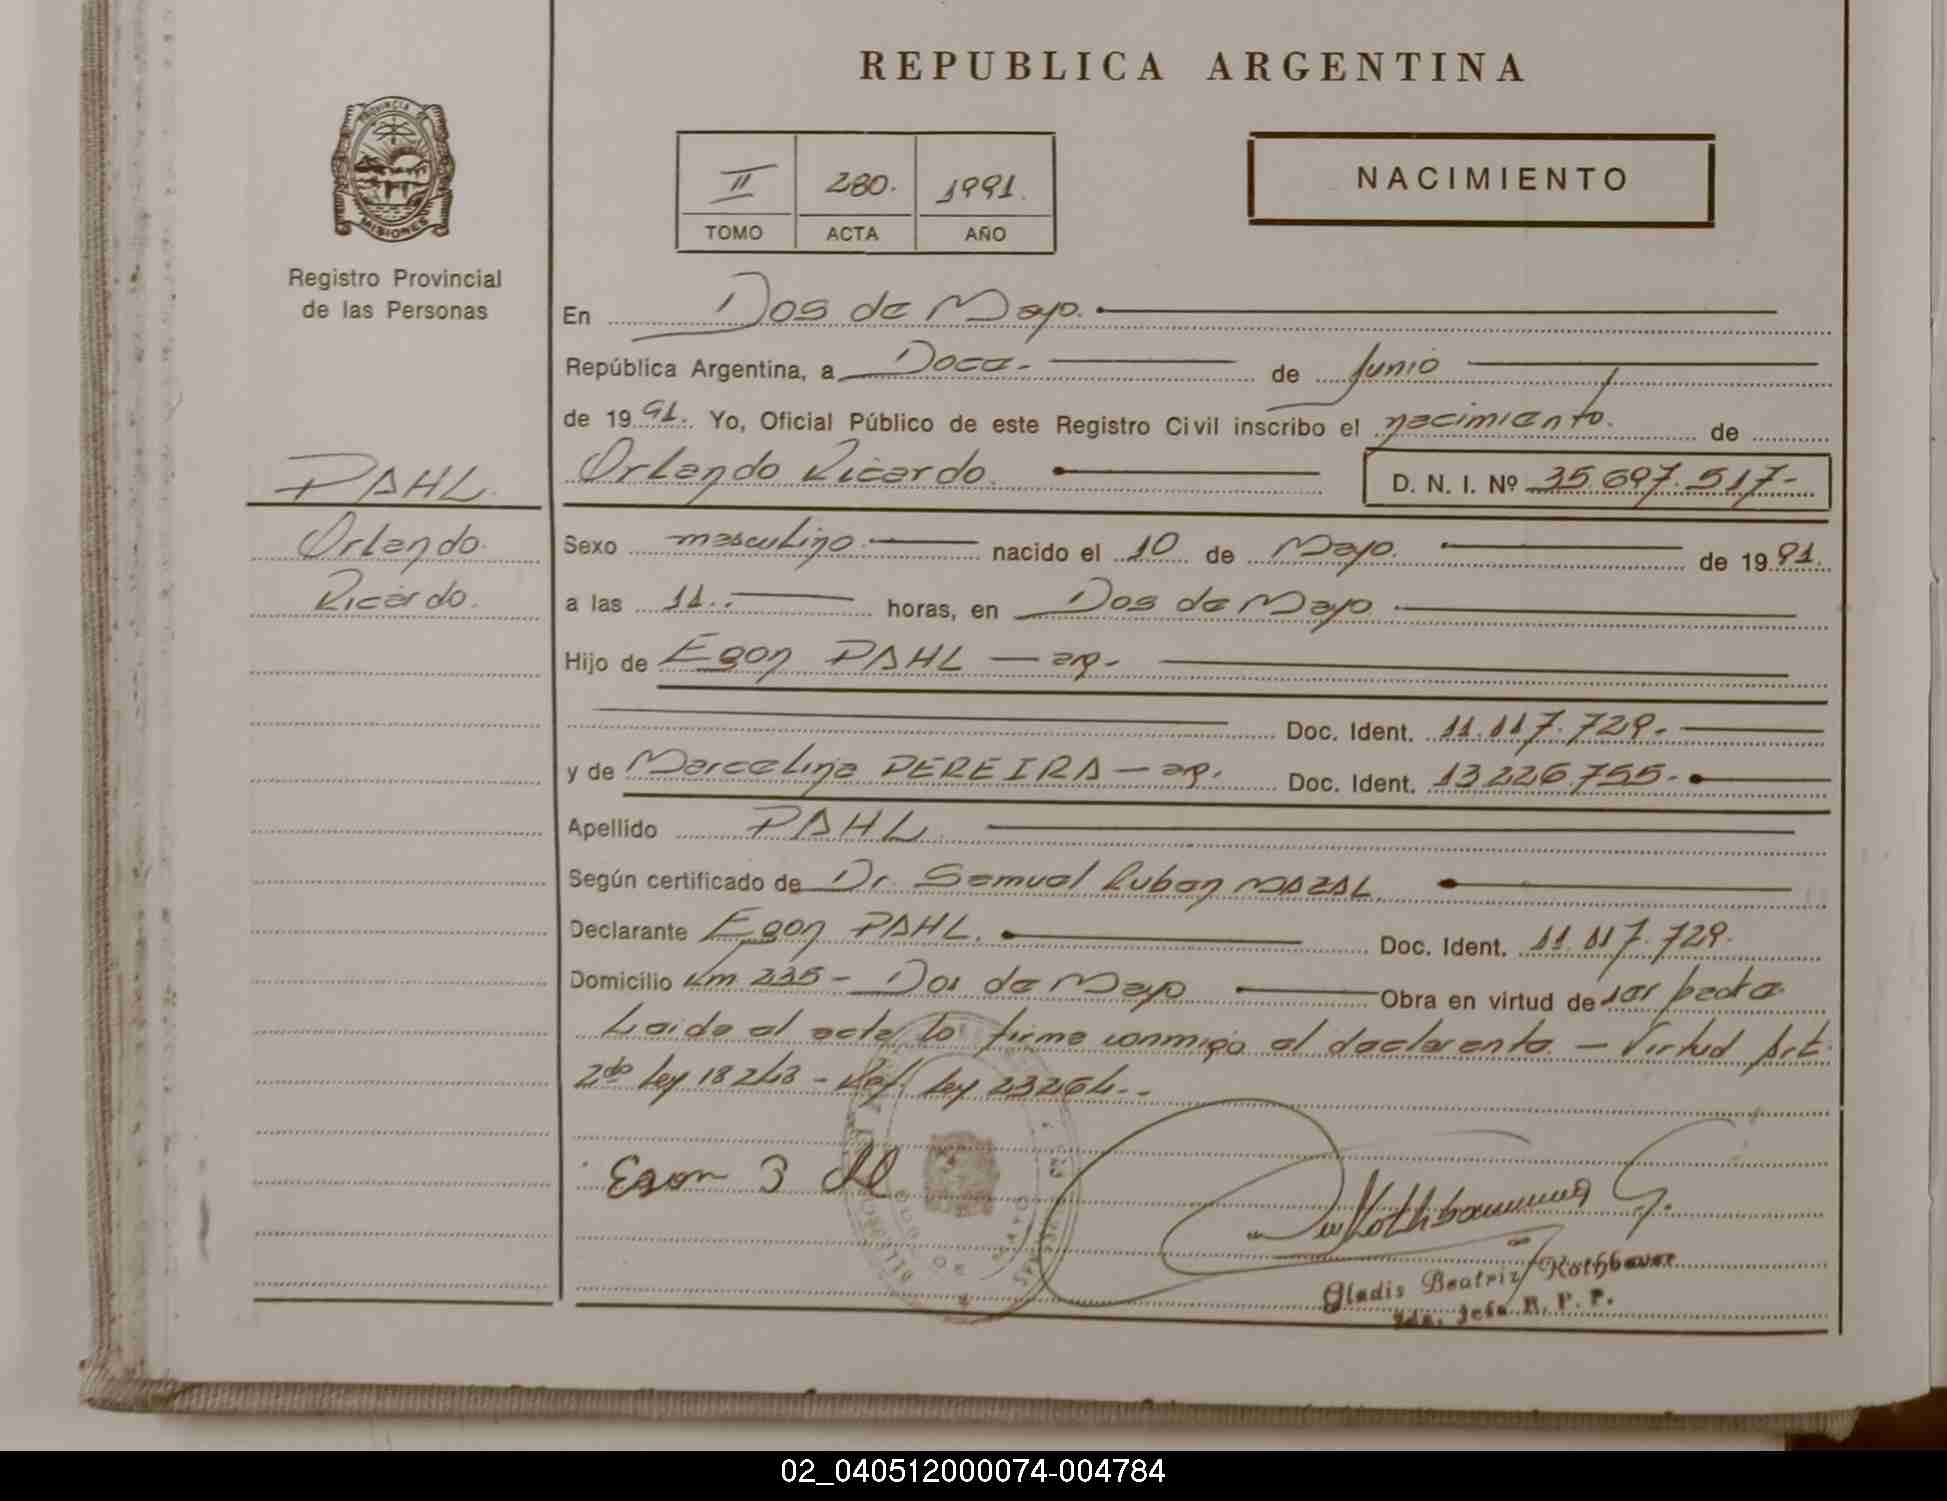 REPUBLICA ARGENTINA
PROVINCIA DE
MISIONES
Registro Provincial
de las Personas
II 280. 1991.
TOMO ACTA AÑO
NACIMIENTO
En Dos de Mayo.
República Argentina, a Doce.- de Junio
de 1991. Yo, Oficial Público de este Registro Civil inscribo el nacimiento. de
Orlando Ricardo. D. N. I. Nº 35.697.517-
PAHL
Orlando
Ricardo.
Sexo masculino. nacido el 10 de Mayo. de 1991.
a las 11.- horas, en Dos de Mayo
Hijo de Egon PAHL — ar.
Doc. Ident. 11.117.729.-
y de Marcelina PEREIRA — ar. Doc. Ident. 13226.755.-
Apellido PAHL.
Según certificado de Dr. Samuel Ruben MAZAL.
Declarante Egon PAHL. Doc. Ident. 11.117.729.
Domicilio Km 235 - Dos de Mayo Obra en virtud de ser padre.
Leida el acta lo firma conmigo el declarante. - Virtud Art.
2do Ley 18248 - Ref. Ley 23264.-
Egon
Gladis Beatriz Kothbauer
2da. Jefa R. P. P.
02_040512000074-004784